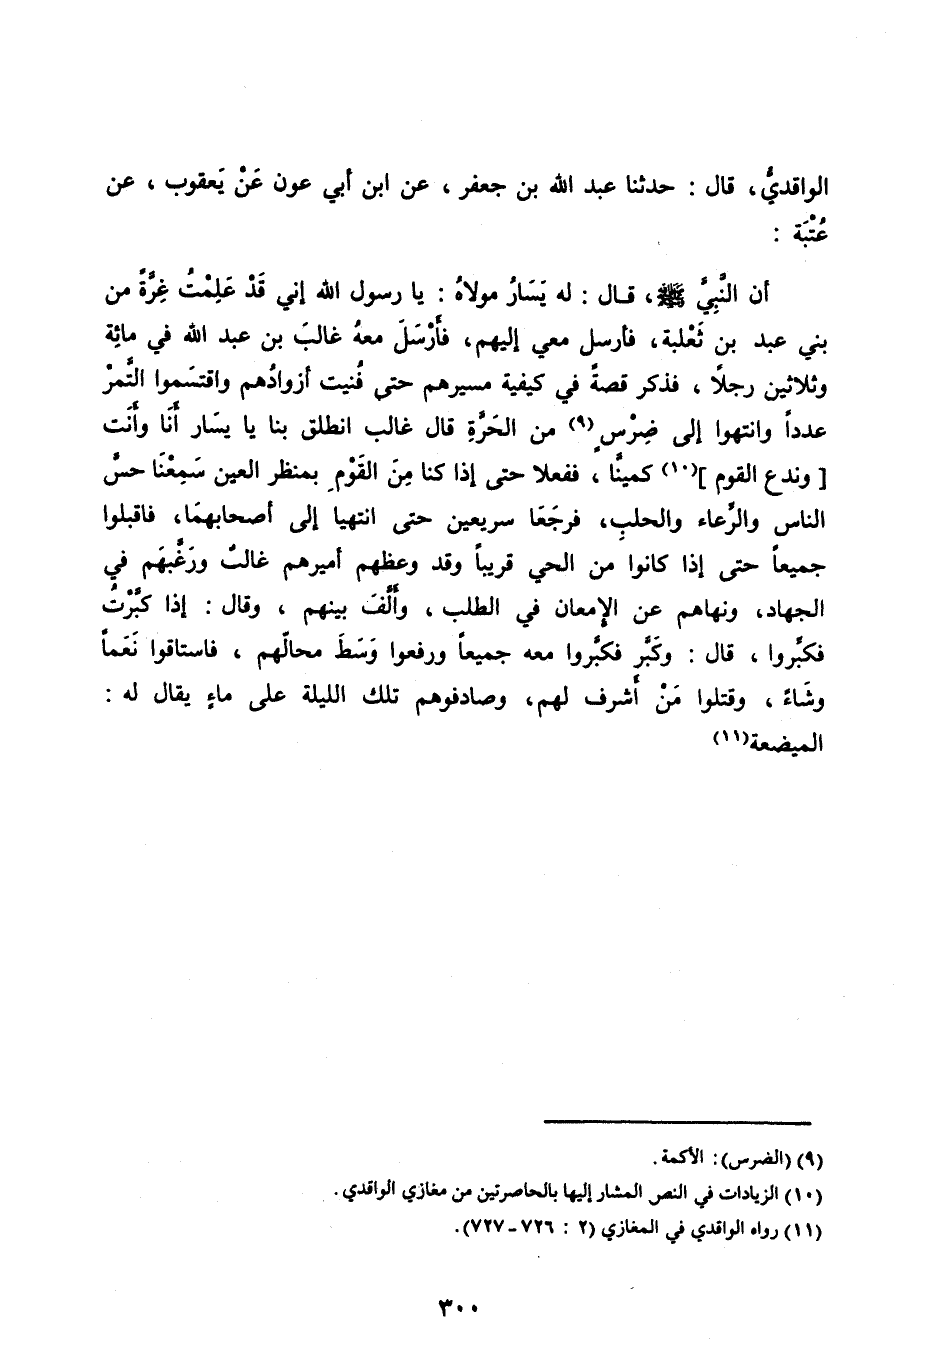 الواقديُّ، قال : حدثنا عبد الله بن جعفر ، عن ابن أبي عون عَنْ يَعقوب ، عن
عُتْبَة :
أن النَّبِيَّ ﷺ، قال : له يَسَارُ مولاهُ : يا رسول الله إني قَدْ عَلِمْتُ غِرَّةً من
بني عبد بن ثَعْلبة، فأرسل معي إليهم، فأَرْسَلَ معهُ غالبَ بن عبد الله في مائِة
وثلاثين رجلًا ، فذكر قصةً في كيفية مسيرهم حتى فُنيت أزوادُهم واقتسَموا التَّمرْ
عدداً وانتهوا إلى ضِرْسٍ(٩) من الحَرَّةِ قال غالب انطلق بنا يا يسَار أَنَا وأَنَت
[ وندع القوم ](١٠) كمينًا ، ففعلا حتى إذا كنا مِنَ القَوْمِ بمنظر العين سَمِعْنَا حسَّ
الناس والرِّعاء والحلبِ، فرجَعَا سريعين حتى انتهيا إلى أصحابهمَا، فاقبلوا
جميعاً حتى إذا كانوا من الحي قريباً وقد وعظهم أميرهم غالبٌ ورَغَّبهَم في
الجهاد، ونهاهم عن الإمعان في الطلب ، وأَلَّفَ بينهم ، وقال : إذا كَبَّرْتُ
فكبِّروا ، قال : وكَبَّر فكبَّروا معه جميعاً ورفعوا وَسَطَ محالّهم ، فاستاقوا نَعَماً
وشَاءً ، وقتلوا مَنْ أَشرف لهم، وصادفوهم تلك الليلة على ماءٍ يقال له :
الميضعة(١١)
(٩) (الضرس): الأكمة.
(١٠) الزيادات في النص المشار إليها بالحاصرتين من مغازي الواقدي.
(١١) رواه الواقدي في المغازي (٢ : ٧٢٦ ـ ٧٢٧).
٣٠٠